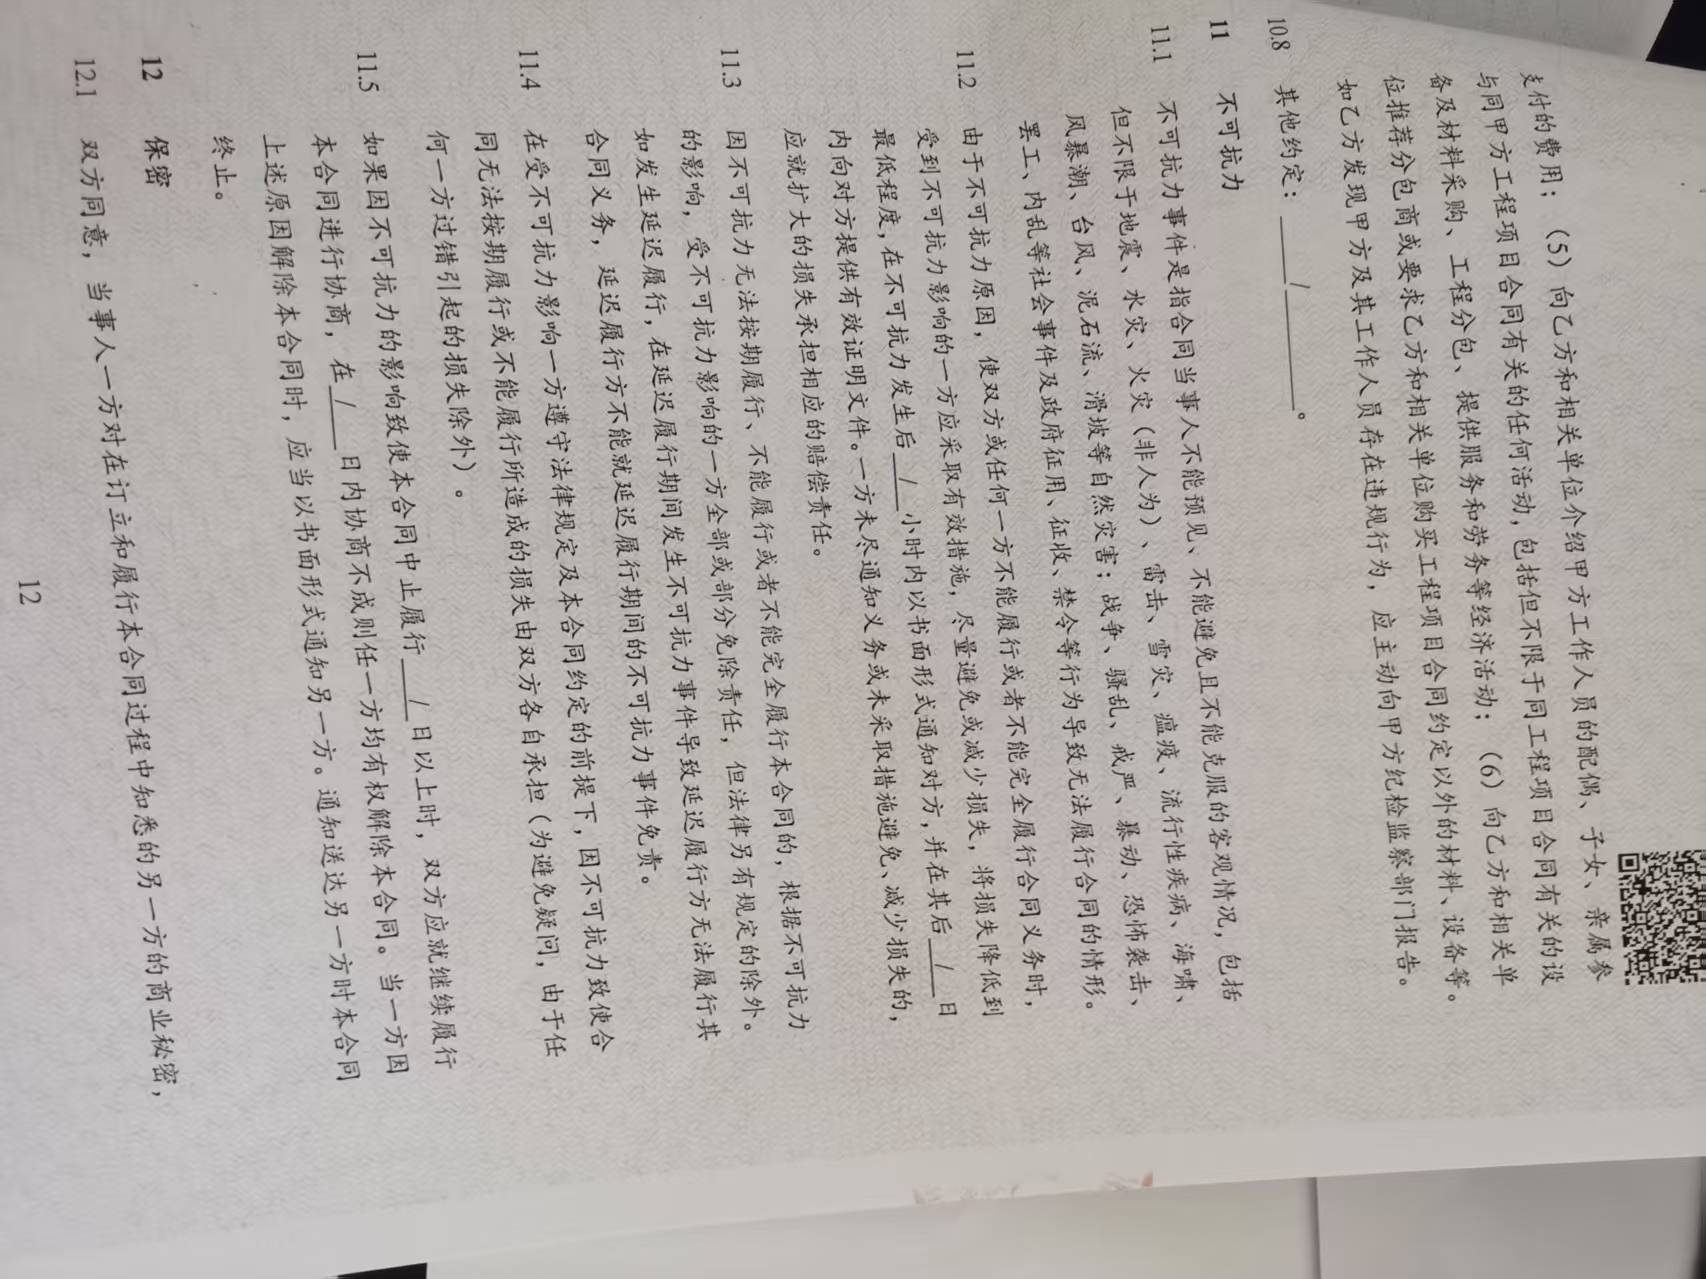 支付的费用；（5）向乙方和相关单位介绍甲方工作人员的配偶、子女、亲属参
与同甲方工程项目合同有关的任何活动，包括但不限于同工程项目合同有关的设
备及材料采购、工程分包、提供服务和劳务等经济活动；（6）向乙方和相关单
位推荐分包商或要求乙方和相关单位购买工程项目合同约定以外的材料、设备等。
如乙方发现甲方及其工作人员存在违规行为，应主动向甲方纪检监察部门报告。
10.8 其他约定：____/________。
11 不可抗力
11.1 不可抗力事件是指合同当事人不能预见、不能避免且不能克服的客观情况，包括
但不限于地震、水灾、火灾（非人为）、雷击、雪灾、瘟疫、流行性疾病、海啸、
风暴潮、台风、泥石流、滑坡等自然灾害；战争、骚乱、戒严、暴动、恐怖袭击、
罢工、内乱等社会事件及政府征用、征收、禁令等行为导致无法履行合同的情形。
11.2 由于不可抗力原因，使双方或任何一方不能履行或者不能完全履行合同义务时，
受到不可抗力影响的一方应采取有效措施，尽量避免或减少损失，将损失降低到
最低程度，在不可抗力发生后__/__小时内以书面形式通知对方，并在其后__/__日
内向对方提供有效证明文件。一方未尽通知义务或未采取措施避免、减少损失的，
应就扩大的损失承担相应的赔偿责任。
11.3 因不可抗力无法按期履行、不能履行或者不能完全履行本合同的，根据不可抗力
的影响，受不可抗力影响的一方全部或部分免除责任，但法律另有规定的除外。
如发生延迟履行，在延迟履行期间发生不可抗力事件导致延迟履行方无法履行其
合同义务，延迟履行方不能就延迟履行期间的不可抗力事件免责。
11.4 在受不可抗力影响一方遵守法律规定及本合同约定的前提下，因不可抗力致使合
同无法按期履行或不能履行所造成的损失由双方各自承担（为避免疑问，由于任
何一方过错引起的损失除外）。
11.5 如果因不可抗力的影响致使本合同中止履行__/__日以上时，双方应就继续履行
本合同进行协商，在__/__日内协商不成则任一方均有权解除本合同。当一方因
上述原因解除本合同时，应当以书面形式通知另一方。通知送达另一方时本合同
终止。
12 保密
12.1 双方同意，当事人一方对在订立和履行本合同过程中知悉的另一方的商业秘密，
12